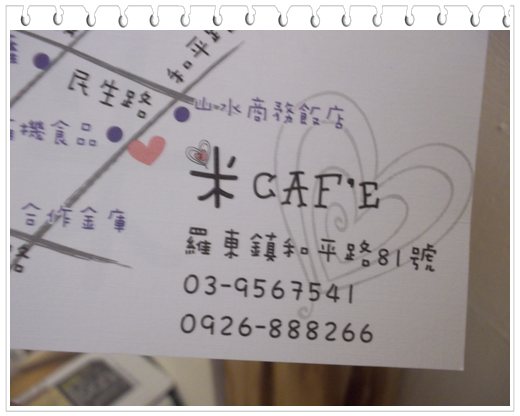 和平路
民生路
山水商務飯店
機食品
合作金庫
路
米 CAF'E
羅東鎮和平路81號
03-9567541
0926-888266